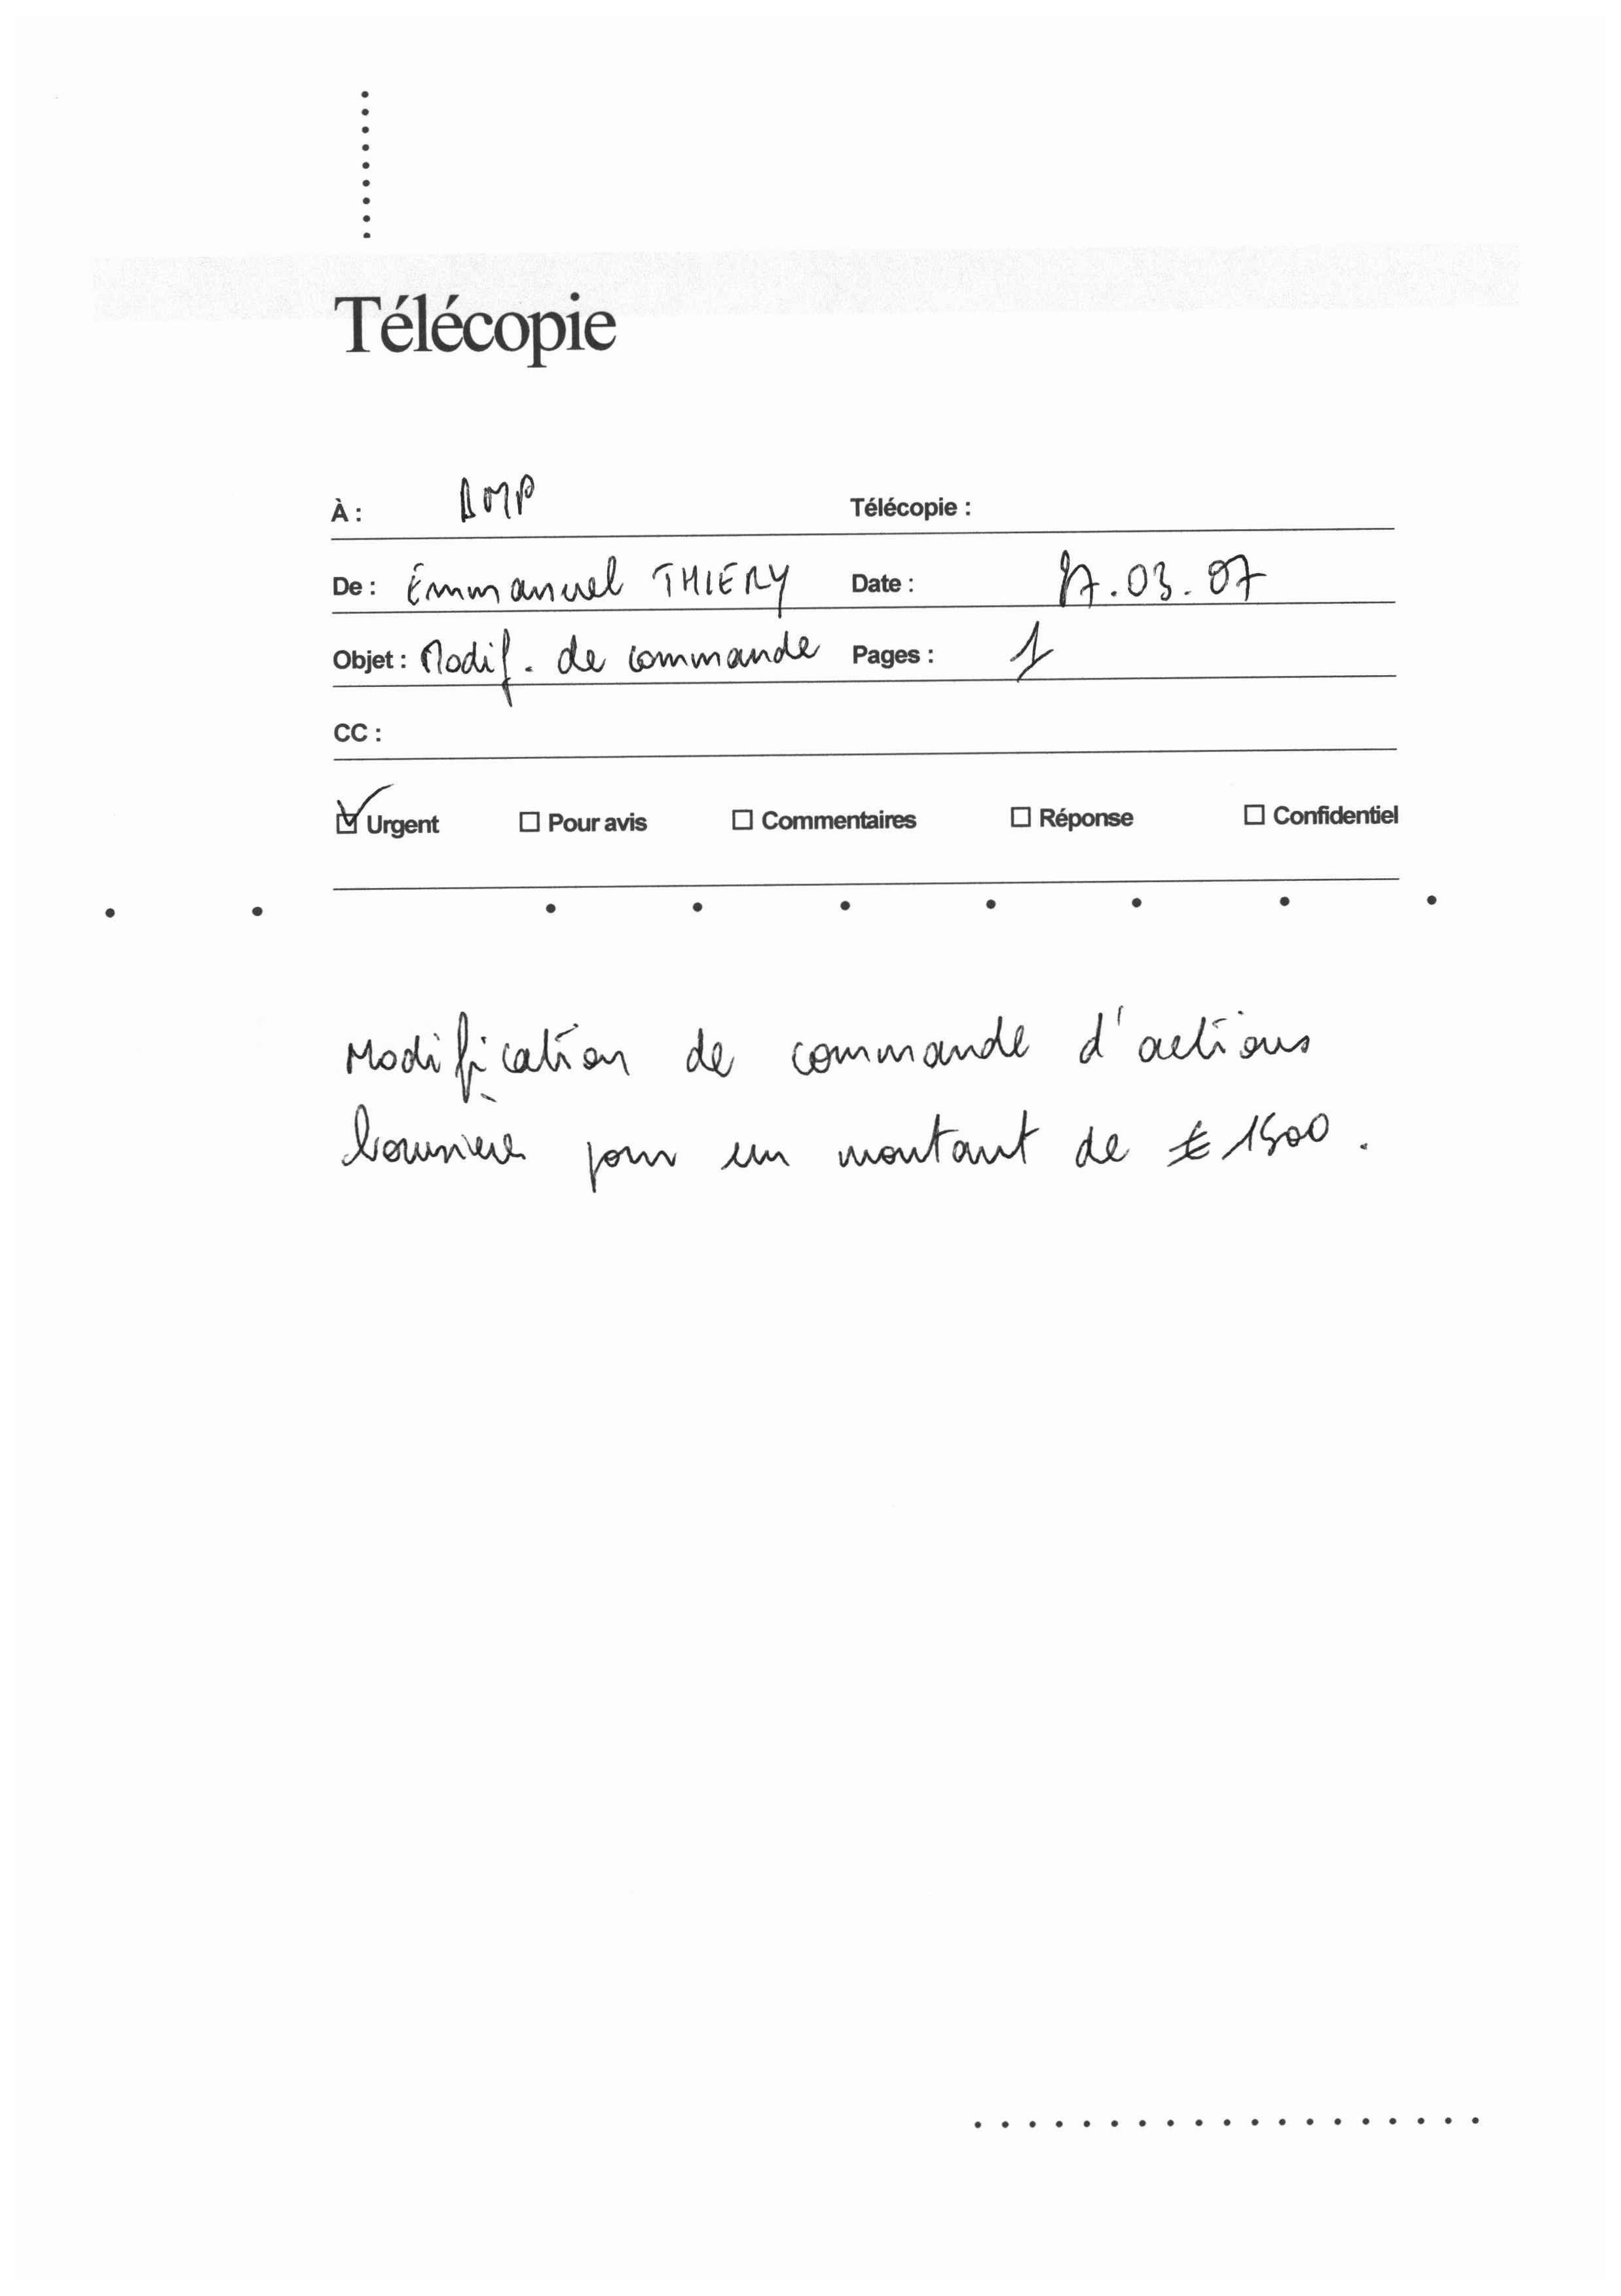 Télécopie
À : BMP Télécopie :
De : Emmanuel THIERY Date : 17.03.07
Objet : Modif. de commande Pages : 1
CC :
Urgent Pour avis Commentaires Réponse Confidentiel
Modification de commande d'actions
pour un montant de € 1500.